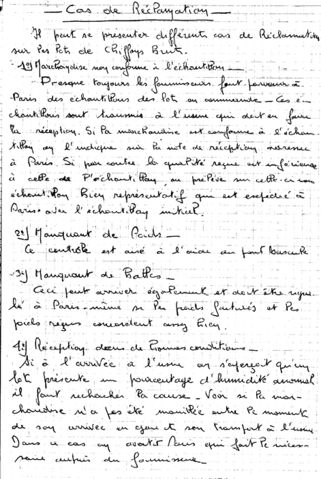 _ Cas de Réclamation _
Il peut se présenter différents cas de Réclamation
sur les lots de Chiffons Bruts.
1°) Marchandise non conforme à l'échantillon _
Presque toujours les fournisseurs font parvenir à
Paris des échantillons des lots en commande _ Ces é-
chantillons sont transmis à l'usine qui doit en faire
la réception. Si la marchandise est conforme à l'échan-
tillon on l'indique sur la note de réception adressée
à Paris. Si par contre la qualité reçue est inférieure
à celle de l'échantillon, on prélève sur celle-ci un
échantillon bien représentatif qui est expédié à
Paris avec l'échantillon initial.
2°) Manquant de Poids _
Ce contrôle est aisé à l'aide du pont bascule
3°) Manquant de Balles _
Ceci peut arriver également et doit être signa-
lé à Paris même si les poids facturés et les
poids reçus concordent assez bien.
4°) Réception dans de bonnes conditions _
Si à l'arrivée à l'usine on s'aperçoit qu'un
lot présente un pourcentage d'humidité anormal
il faut rechercher la cause _ Voir si la mar-
chandise n'a pas été mouillée entre le moment
de son arrivée en gare et son transport à l'usine
Dans ce cas on avertit Paris qui fait le néces-
saire auprès du fournisseur _